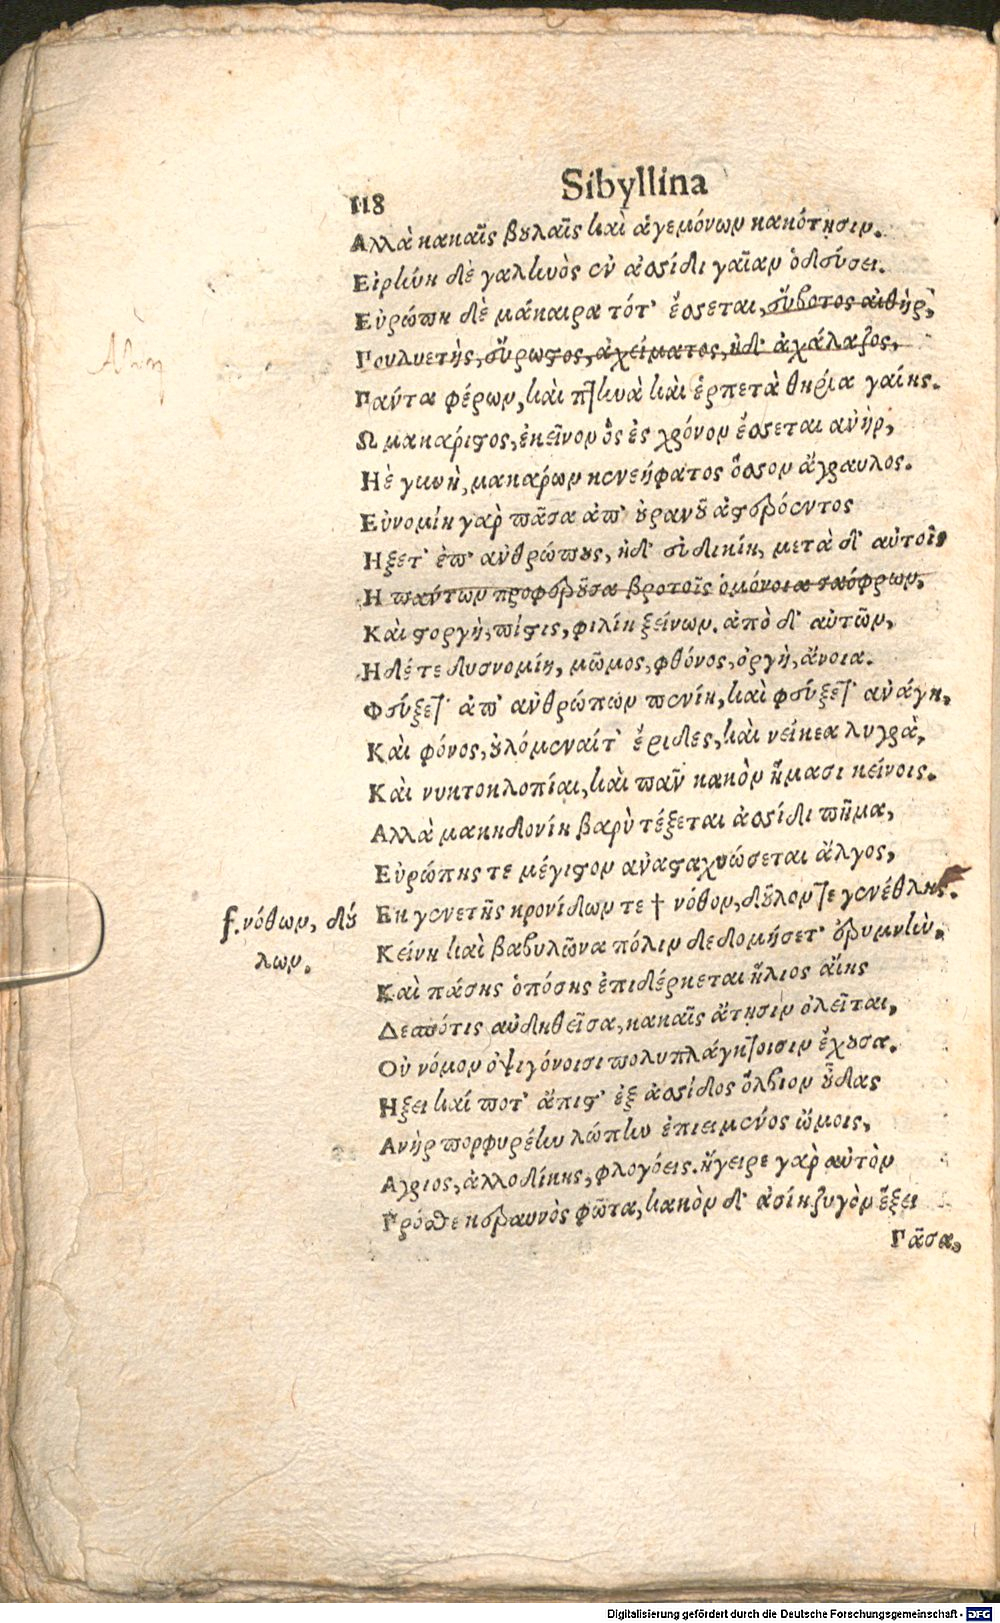 118
Sibyllina
Αλλὰ κακαῖς βουλαῖς καὶ ἁγεμόνων κακότησιν.
Εἰρήνη δὲ γαλήνὸς ἐν ἀσίδι γαῖαν ὁδεύσει.
Εὐρώπη δὲ μάκαιρα τότ' ἔσσεται, εὔβοτος αἰθὴρ,
Πουλυετὴς, εὔρωστος, ἀχείματος, ἠδ' ἀχάλαζος,
Πάντα φέρων, καὶ πτηνὰ καὶ ἑρπετὰ θηρία γαίης.
Ω μακαριστος, ἐκεῖνον ὃς ἐς χρόνον ἔσσεται ἀνὴρ,
Ηὲ γυνὴ, μακάρων κενεήφατος ὅσσον ἄγραυλος.
Εὐνομίη γὰρ πᾶσα ἀπ' οὐρανοῦ ἀστερόεντος
Ηξετ' ἐπ' ἀνθρώπους, ἠδ' εὐδικίη, μετὰ δ' αὐτοῖς
Η πάντων προφεροῦσα βροτοῖς ὁμόνοια σαόφρων,
Καὶ στοργὴ, πίστις, φιλίη ξείνων. ἀπὸ δ' αὐτῶν,
Ηδέ τε δυσνομίη, μῶμος, φθόνος, ὀργὴ, ἄνοια.
Φεύξετ' ἀπ' ἀνθρώπων πενίη, καὶ φεύξετ' ἀνάγκη,
Καὶ φόνος, οὐλόμεναίτ' ἔριδες, καὶ νείκεα λυγρὰ,
Καὶ νυκτοκλοπίαι, καὶ πᾶν κακὸν ἤμασι κείνοις.
Αλλὰ μακηδονίη βαρὺ τέξεται ἀσίδι πῆμα,
Εὐρώπης τε μέγιστον ἀνασταχυώσεται ἄλγος,
f. νόθων, δού
Εκ γενετῆς κρονίδων τε † νόθον, δοῦλον τε γενέθλης.
λων.
Κείνη καὶ βαβυλῶνα πόλιν δεδομήσετ' ἐρυμνὴν.
Καὶ πάσης ὁπόσης ἐπιδέρκεται ἥλιος αἴης
Δεσπότις αὐδηθεῖσα, κακαῖς ἄτησιν ὀλεῖται,
Οὐ νόμον ὀψιγόνοισι πολυπλάγκτοισιν ἔχουσα.
Ηξει καί ποτ' ἄπιστ' ἐξ ἀσίδος ὄλβιον οὖδας
Ανὴρ πορφυρέην λώπην ἐπιειμένος ὤμοις,
Αγριος, ἀλλοδίκης, φλογόεις. ἤγειρε γὰρ αὐτὸν
Πρόσθε κεραυνὸς φῶτα, κακὸν δ' ἀσίη ζυγὸν ἕξει
Πᾶσα,
Digitalisierung gefördert durch die Deutsche Forschungsgemeinschaft - DFG